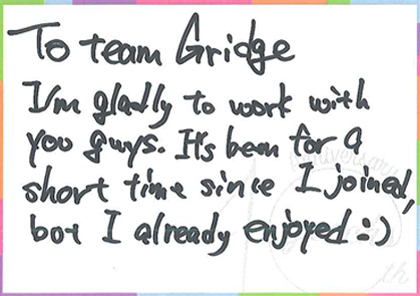 To team Gridge
I'm gladly to work with
you guys. It's been for a
short time since I joined,
bot I already enjoyed :)
Anniversary
10
th